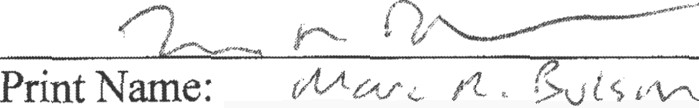 Print Name: Marc R. Bulson